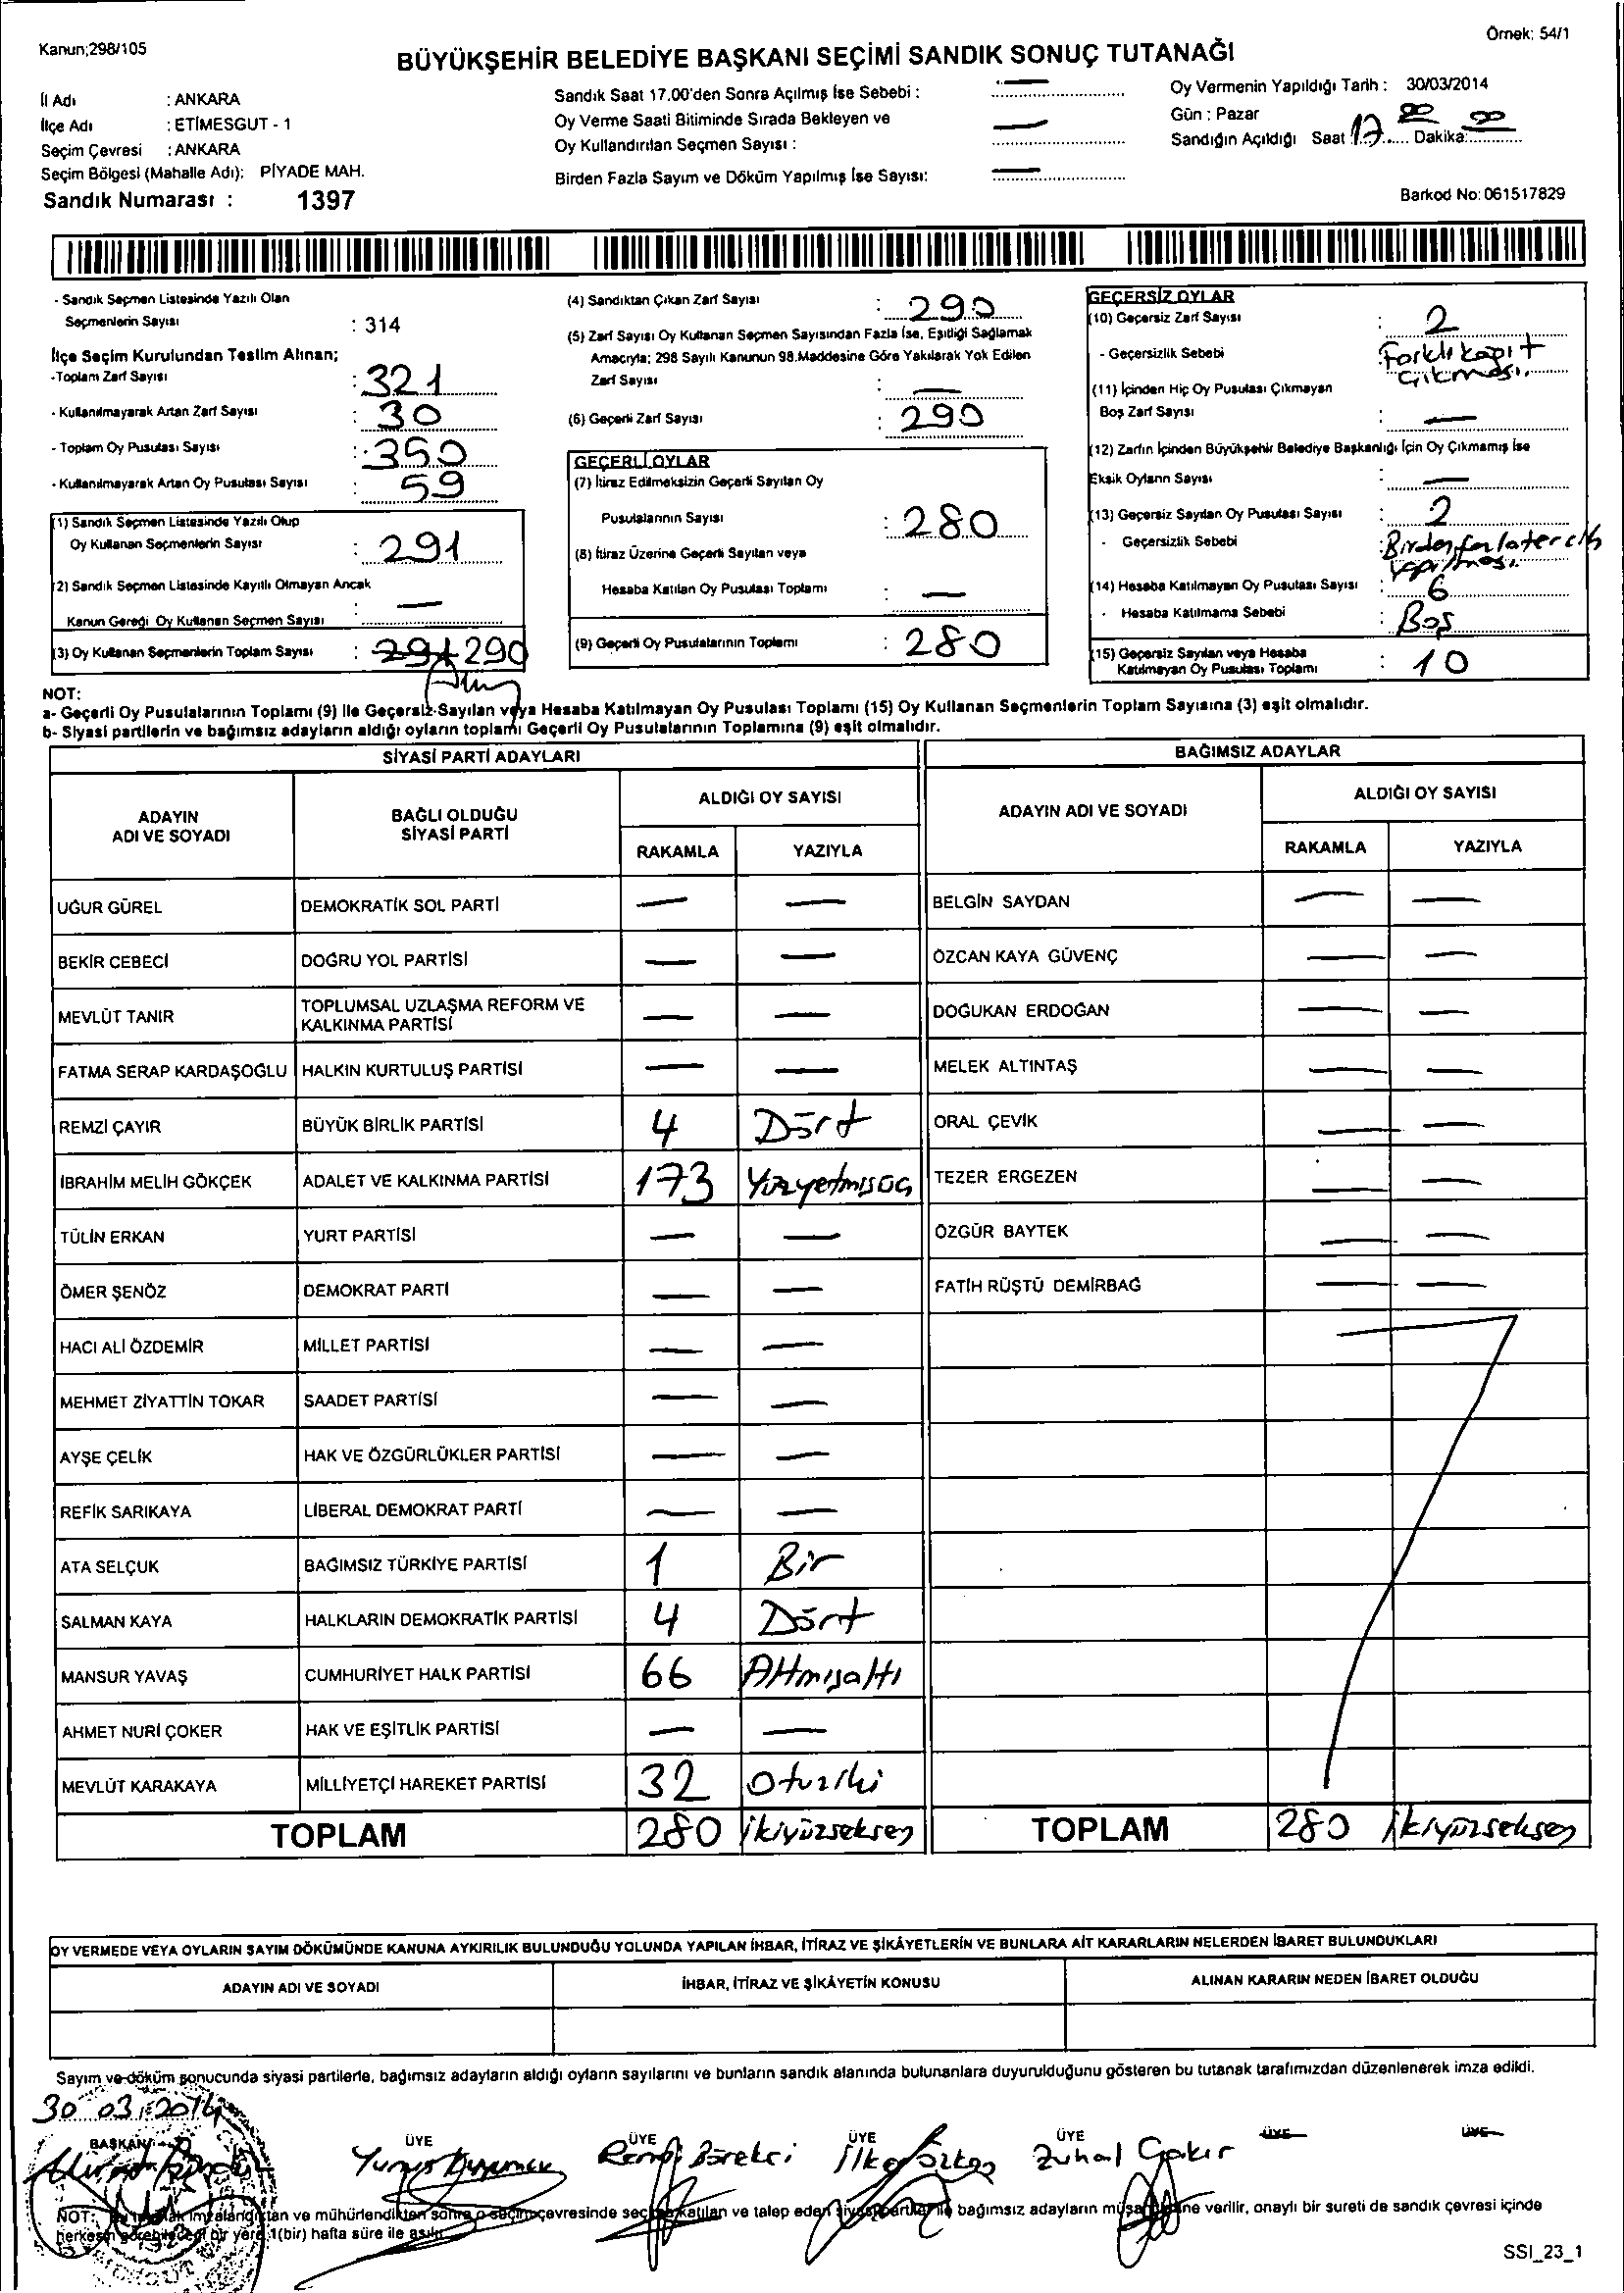 Kanun;298/105
Örnek: 54/1
BÜYÜKŞEHİR BELEDİYE BAŞKANI SEÇİMİ SANDIK SONUÇ TUTANAĞI
İl Adı : ANKARA
İlçe Adı : ETİMESGUT - 1
Seçim Çevresi : ANKARA
Seçim Bölgesi (Mahalle Adı): PİYADE MAH.
Sandık Numarası : 1397
Sandık Saat 17.00'den Sonra Açılmış İse Sebebi : —
Oy Verme Saati Bitiminde Sırada Bekleyen ve
Oy Kullandırılan Seçmen Sayısı : —
Birden Fazla Sayım ve Döküm Yapılmış İse Sayısı: —
Oy Vermenin Yapıldığı Tarih : 30/03/2014
Gün : Pazar
Sandığın Açıldığı Saat 17 00 Dakika: 00
Barkod No: 061517829
- Sandık Seçmen Listesinde Yazılı Olan
Seçmenlerin Sayısı : 314
İlçe Seçim Kurulundan Teslim Alınan;
-Toplam Zarf Sayısı : 321
- Kullanılmayarak Artan Zarf Sayısı : 30
- Toplam Oy Pusulası Sayısı : 350
- Kullanılmayarak Artan Oy Pusulası Sayısı : 59
(1) Sandık Seçmen Listesinde Yazılı Olup
Oy Kullanan Seçmenlerin Sayısı : 291
(2) Sandık Seçmen Listesinde Kayıtlı Olmayan Ancak
Kanun Gereği Oy Kullanan Seçmen Sayısı : —
(3) Oy Kullanan Seçmenlerin Toplam Sayısı : 291 290
(4) Sandıktan Çıkan Zarf Sayısı : 290
(5) Zarf Sayısı Oy Kullanan Seçmen Sayısından Fazla İse, Eşitliği Sağlamak
Amacıyla; 298 Sayılı Kanunun 98.Maddesine Göre Yakılarak Yok Edilen
Zarf Sayısı : —
(6) Geçerli Zarf Sayısı : 290
GEÇERLİ OYLAR
(7) İtiraz Edilmeksizin Geçerli Sayılan Oy
Pusulalarının Sayısı : 280
(8) İtiraz Üzerine Geçerli Sayılan veya
Hesaba Katılan Oy Pusulası Toplamı : —
(9) Geçerli Oy Pusulalarının Toplamı : 280
GEÇERSİZ OYLAR
(10) Geçersiz Zarf Sayısı : 2
- Geçersizlik Sebebi : Farklı kağıt
çıkması.
(11) İçinden Hiç Oy Pusulası Çıkmayan
Boş Zarf Sayısı : —
(12) Zarfın İçinden Büyükşehir Belediye Başkanlığı İçin Oy Çıkmamış İse
Eksik Oyların Sayısı : —
(13) Geçersiz Sayılan Oy Pusulası Sayısı : 2
- Geçersizlik Sebebi : Birden fazla tercih
yapılması.
(14) Hesaba Katılmayan Oy Pusulası Sayısı : 6
- Hesaba Katılmama Sebebi : Boş
(15) Geçersiz Sayılan veya Hesaba
Katılmayan Oy Pusulası Toplamı : 10
NOT:
a- Geçerli Oy Pusulalarının Toplamı (9) ile Geçersiz Sayılan veya Hesaba Katılmayan Oy Pusulası Toplamı (15) Oy Kullanan Seçmenlerin Toplam Sayısına (3) eşit olmalıdır.
b- Siyasi partilerin ve bağımsız adayların aldığı oyların toplamı Geçerli Oy Pusulalarının Toplamına (9) eşit olmalıdır.
SİYASİ PARTİ ADAYLARI
BAĞIMSIZ ADAYLAR
ADAYIN
ADI VE SOYADI
BAĞLI OLDUĞU
SİYASİ PARTİ
ALDIĞI OY SAYISI
RAKAMLA YAZIYLA
ADAYIN ADI VE SOYADI
ALDIĞI OY SAYISI
RAKAMLA YAZIYLA
UĞUR GÜREL DEMOKRATİK SOL PARTİ — — BELGİN SAYDAN — —
BEKİR CEBECİ DOĞRU YOL PARTİSİ — — ÖZCAN KAYA GÜVENÇ — —
MEVLÜT TANIR TOPLUMSAL UZLAŞMA REFORM VE
KALKINMA PARTİSİ — — DOĞUKAN ERDOĞAN — —
FATMA SERAP KARDAŞOĞLU HALKIN KURTULUŞ PARTİSİ — — MELEK ALTINTAŞ — —
REMZİ ÇAYIR BÜYÜK BİRLİK PARTİSİ 4 Dört ORAL ÇEVİK — —
İBRAHİM MELİH GÖKÇEK ADALET VE KALKINMA PARTİSİ 173 Yüzyetmişüç TEZER ERGEZEN — —
TÜLİN ERKAN YURT PARTİSİ — — ÖZGÜR BAYTEK — —
ÖMER ŞENÖZ DEMOKRAT PARTİ — — FATİH RÜŞTÜ DEMİRBAĞ — —
HACI ALİ ÖZDEMİR MİLLET PARTİSİ — —
MEHMET ZİYATTİN TOKAR SAADET PARTİSİ — —
AYŞE ÇELİK HAK VE ÖZGÜRLÜKLER PARTİSİ — —
REFİK SARIKAYA LİBERAL DEMOKRAT PARTİ — —
ATA SELÇUK BAĞIMSIZ TÜRKİYE PARTİSİ 1 Bir
SALMAN KAYA HALKLARIN DEMOKRATİK PARTİSİ 4 Dört
MANSUR YAVAŞ CUMHURİYET HALK PARTİSİ 66 Altmışaltı
AHMET NURİ ÇOKER HAK VE EŞİTLİK PARTİSİ — —
MEVLÜT KARAKAYA MİLLİYETÇİ HAREKET PARTİSİ 32 Otuziki
TOPLAM 280 İkiyüzseksen TOPLAM 280 İkiyüzseksen
OY VERMEDE VEYA OYLARIN SAYIM DÖKÜMÜNDE KANUNA AYKIRILIK BULUNDUĞU YOLUNDA YAPILAN İHBAR, İTİRAZ VE ŞİKÂYETLERİN VE BUNLARA AİT KARARLARIN NELERDEN İBARET BULUNDUKLARI
ADAYIN ADI VE SOYADI İHBAR, İTİRAZ VE ŞİKÂYETİN KONUSU ALINAN KARARIN NEDEN İBARET OLDUĞU
Sayım ve döküm sonucunda siyasi partilerle, bağımsız adayların aldığı oyların sayılarını ve bunların sandık alanında bulunanlara duyurulduğunu gösteren bu tutanak tarafımızdan düzenlenerek imza edildi.
30 03.2014
BAŞKAN ÜYE ÜYE ÜYE ÜYE ÜYE ÜYE
Yunus Remzi Börekci İlker Zuhal Çakır
NOT: Bu tutanak imzalandıktan ve mühürlendikten sonra o seçim çevresinde seçime katılan ve talep eden siyasi partiler ile bağımsız adayların müşahitlerine verilir, onaylı bir sureti de sandık çevresi içinde
herkesin görebileceği bir yere 1(bir) hafta süre ile asılır.
SSI_23_1